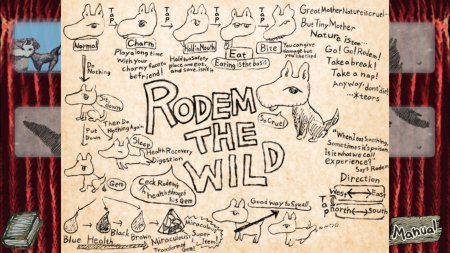 TAP
TAP
TAP
TAP
Great Mother Nature is cruel-
But Tiny Mother
Nature is too...
Go! Go! Rodem!
Take a break!
Take a nap!
Anyway, don't die!
...*tears
Normal
Do
Nothing
Charm
Play along time
With your
charmy face to
befriend!
Hold in Mouth
Hold to a Safety
place and eat,
and save, isn't it
Eat
Eating is the basis
Bite
You can give
damage but
you're tired
So Cruel
Sit
Down
Put
Down
Then Do
Nothing Again
Sleep
Health Recovery
Digestion
Gem
Ceck Rodem's
health through
his gem
RODEM
THE
WILD
"When I eat Something,
Sometimes it's poison
Is it what we call
experience?"
Say's Rodem
Direction
West
East
TAP
TAP
north
South
Good way to Squall
Blue
Health
Black
Brown
Miraculous
Transformed
Gem!
Miraculous
Super
Item!
Manual